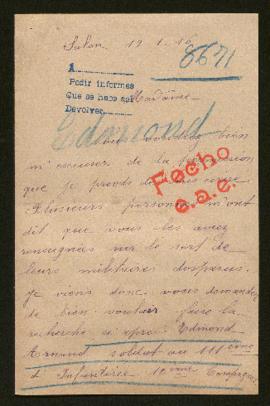 Salon 19 1. 16
8671
A
Pedir informes
Que se hace así
Devolver
Madame
Edmond
bien
m'excuser de la
que je prends de
Plusieurs personnes m'ont
dit que vous les aviez
renseignées sur le sort de
leurs militaires disparus.
Je viens donc vous demander
de bien vouloir faire la
recherche Edmond
Arnaud soldat au 111 ème
d'Infanterie 10 ème Compagnie
Fecho
c.a.e.